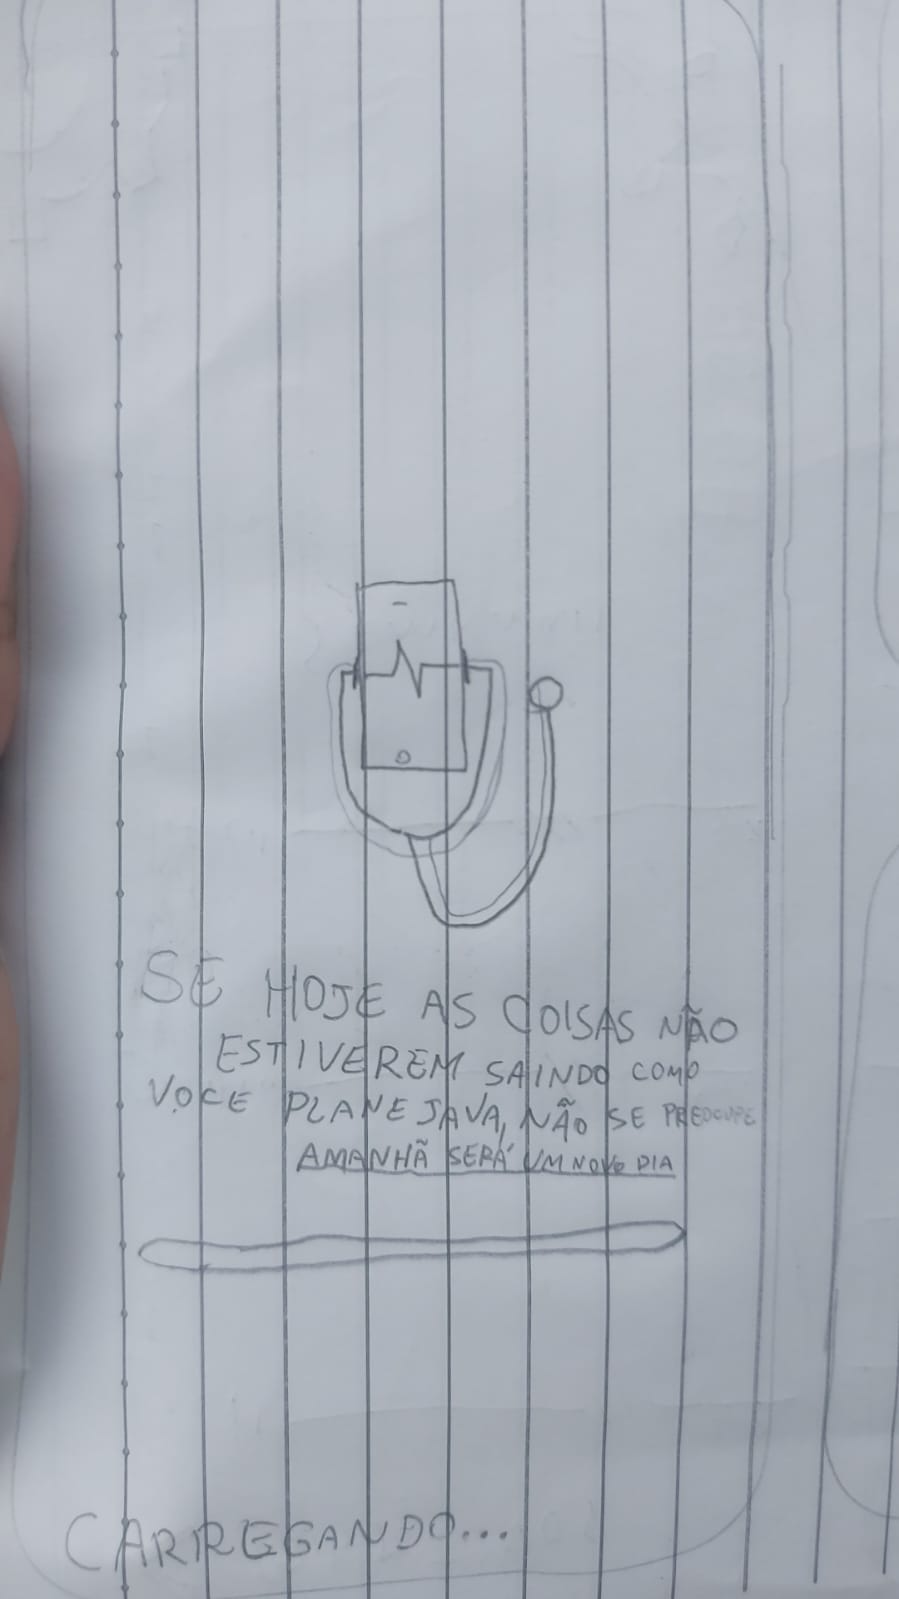 SE HOJE AS COISAS NÃO
ESTIVEREM SAINDO COMO
VOCE PLANEJAVA, NÃO SE PREOCUPE
AMANHÃ SERÁ UM NOVO DIA
CARREGANDO...